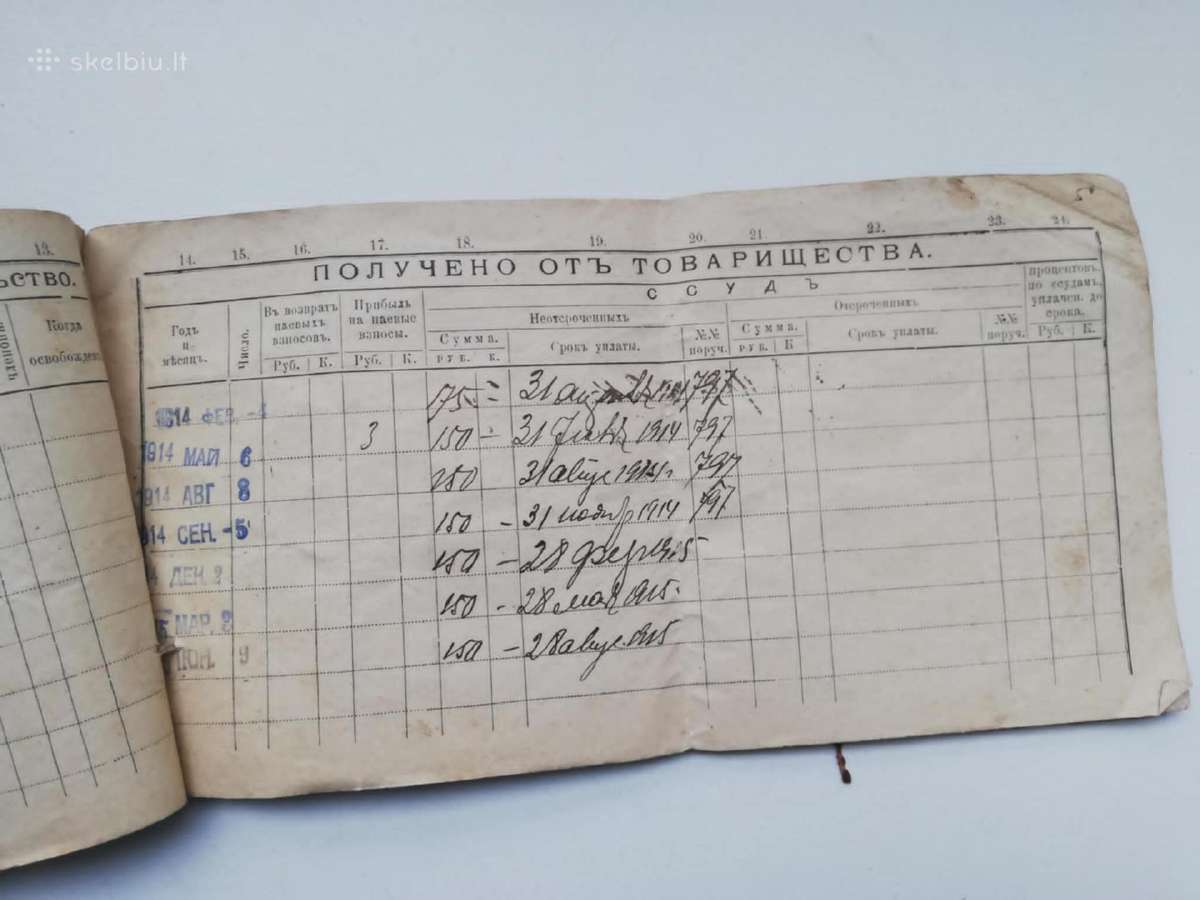 skelbiu.lt
13.
ЬСТВО.
Когда
освобожден
14. 15. 16. 17. 18. 19. 20. 21. 22. 23. 24.
ПОЛУЧЕНО ОТЪ ТОВАРИЩЕСТВА.
ССУДЪ
Годъ и мѣсяцъ.
Число.
Въ возвратъ паевыхъ взносовъ.
Руб. К.
Прибыль на паевые взносы.
Руб. К.
Неотсроченныхъ
Сумма.
РУБ. К.
Срокъ уплаты.
№№ поруч.
Отсроченныхъ
Сумма.
РУБ. К
Срокъ уплаты.
№№ поруч.
процентовъ по ссудамъ, уплачен. до срока.
Руб. К.
1914 ФЕВ. -4 175 = 31 797
1914 МАЙ 6 3 150 - 31 1914 797
1914 АВГ 8 150 31 797
914 СЕН. -5 150 - 31 ноябр 1914 797
4 ДЕК 2 150 - 28 фев 1915
МАР. 2 150 - 28 мая 1915.
ИЮН. 9 150 - 28 авгус 1915